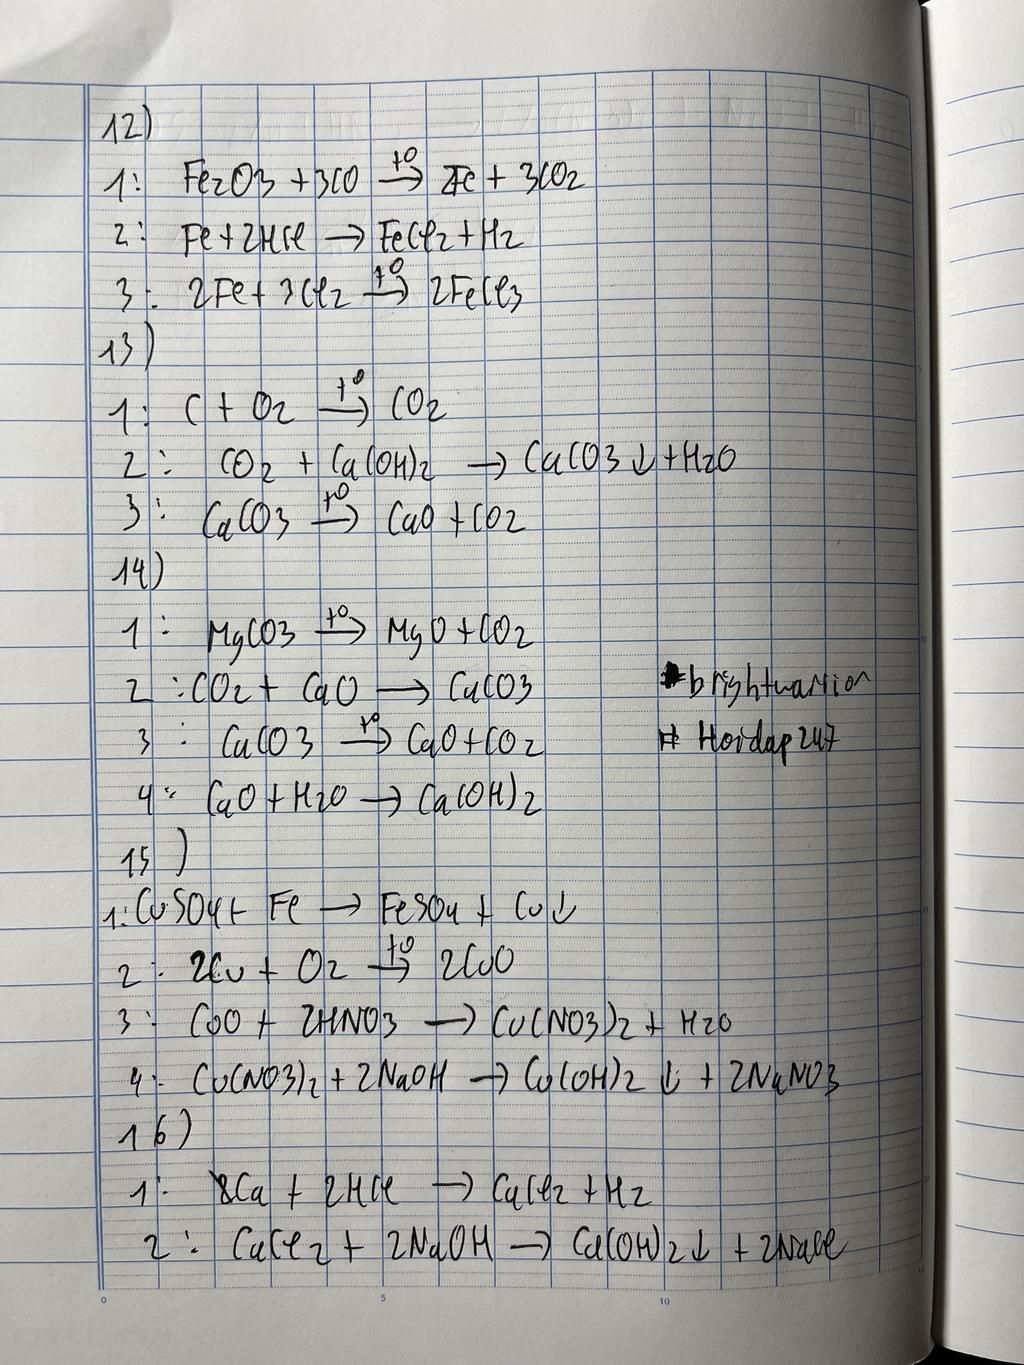 12)
1: Fe2O3 + 3CO t0→ 2Fe + 3CO2
2: Fe + 2HCl → FeCl2 + H2
3: 2Fe + 3Cl2 t0→ 2FeCl3
13)
1: C + O2 t0→ CO2
2: CO2 + Ca(OH)2 → CaCO3↓ + H2O
3: CaCO3 t0→ CaO + CO2
14)
1: MgCO3 t0→ MgO + CO2
2: CO2 + CaO → CaCO3
brightwarrior
3: CaCO3 t0→ CaO + CO2
# Hoidap247
4: CaO + H2O → Ca(OH)2
15)
1: CuSO4 + Fe → FeSO4 + Cu↓
2: 2Cu + O2 t0→ 2CuO
3: CuO + 2HNO3 → Cu(NO3)2 + H2O
4: Cu(NO3)2 + 2NaOH → Cu(OH)2↓ + 2NaNO3
16)
1: Ca + 2HCl → CaCl2 + H2
2: CaCl2 + 2NaOH → Ca(OH)2↓ + 2NaCl
0 5 10